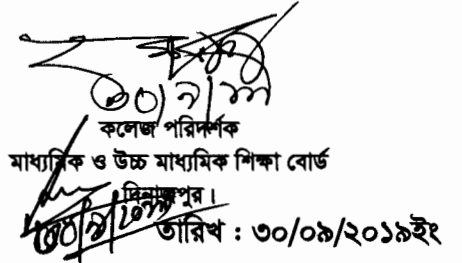 ৩০/৯/১৯
কলেজ পরিদর্শক
মাধ্যমিক ও উচ্চ মাধ্যমিক শিক্ষা বোর্ড
দিনাজপুর।
তারিখ : ৩০/০৯/২০১৯ইং